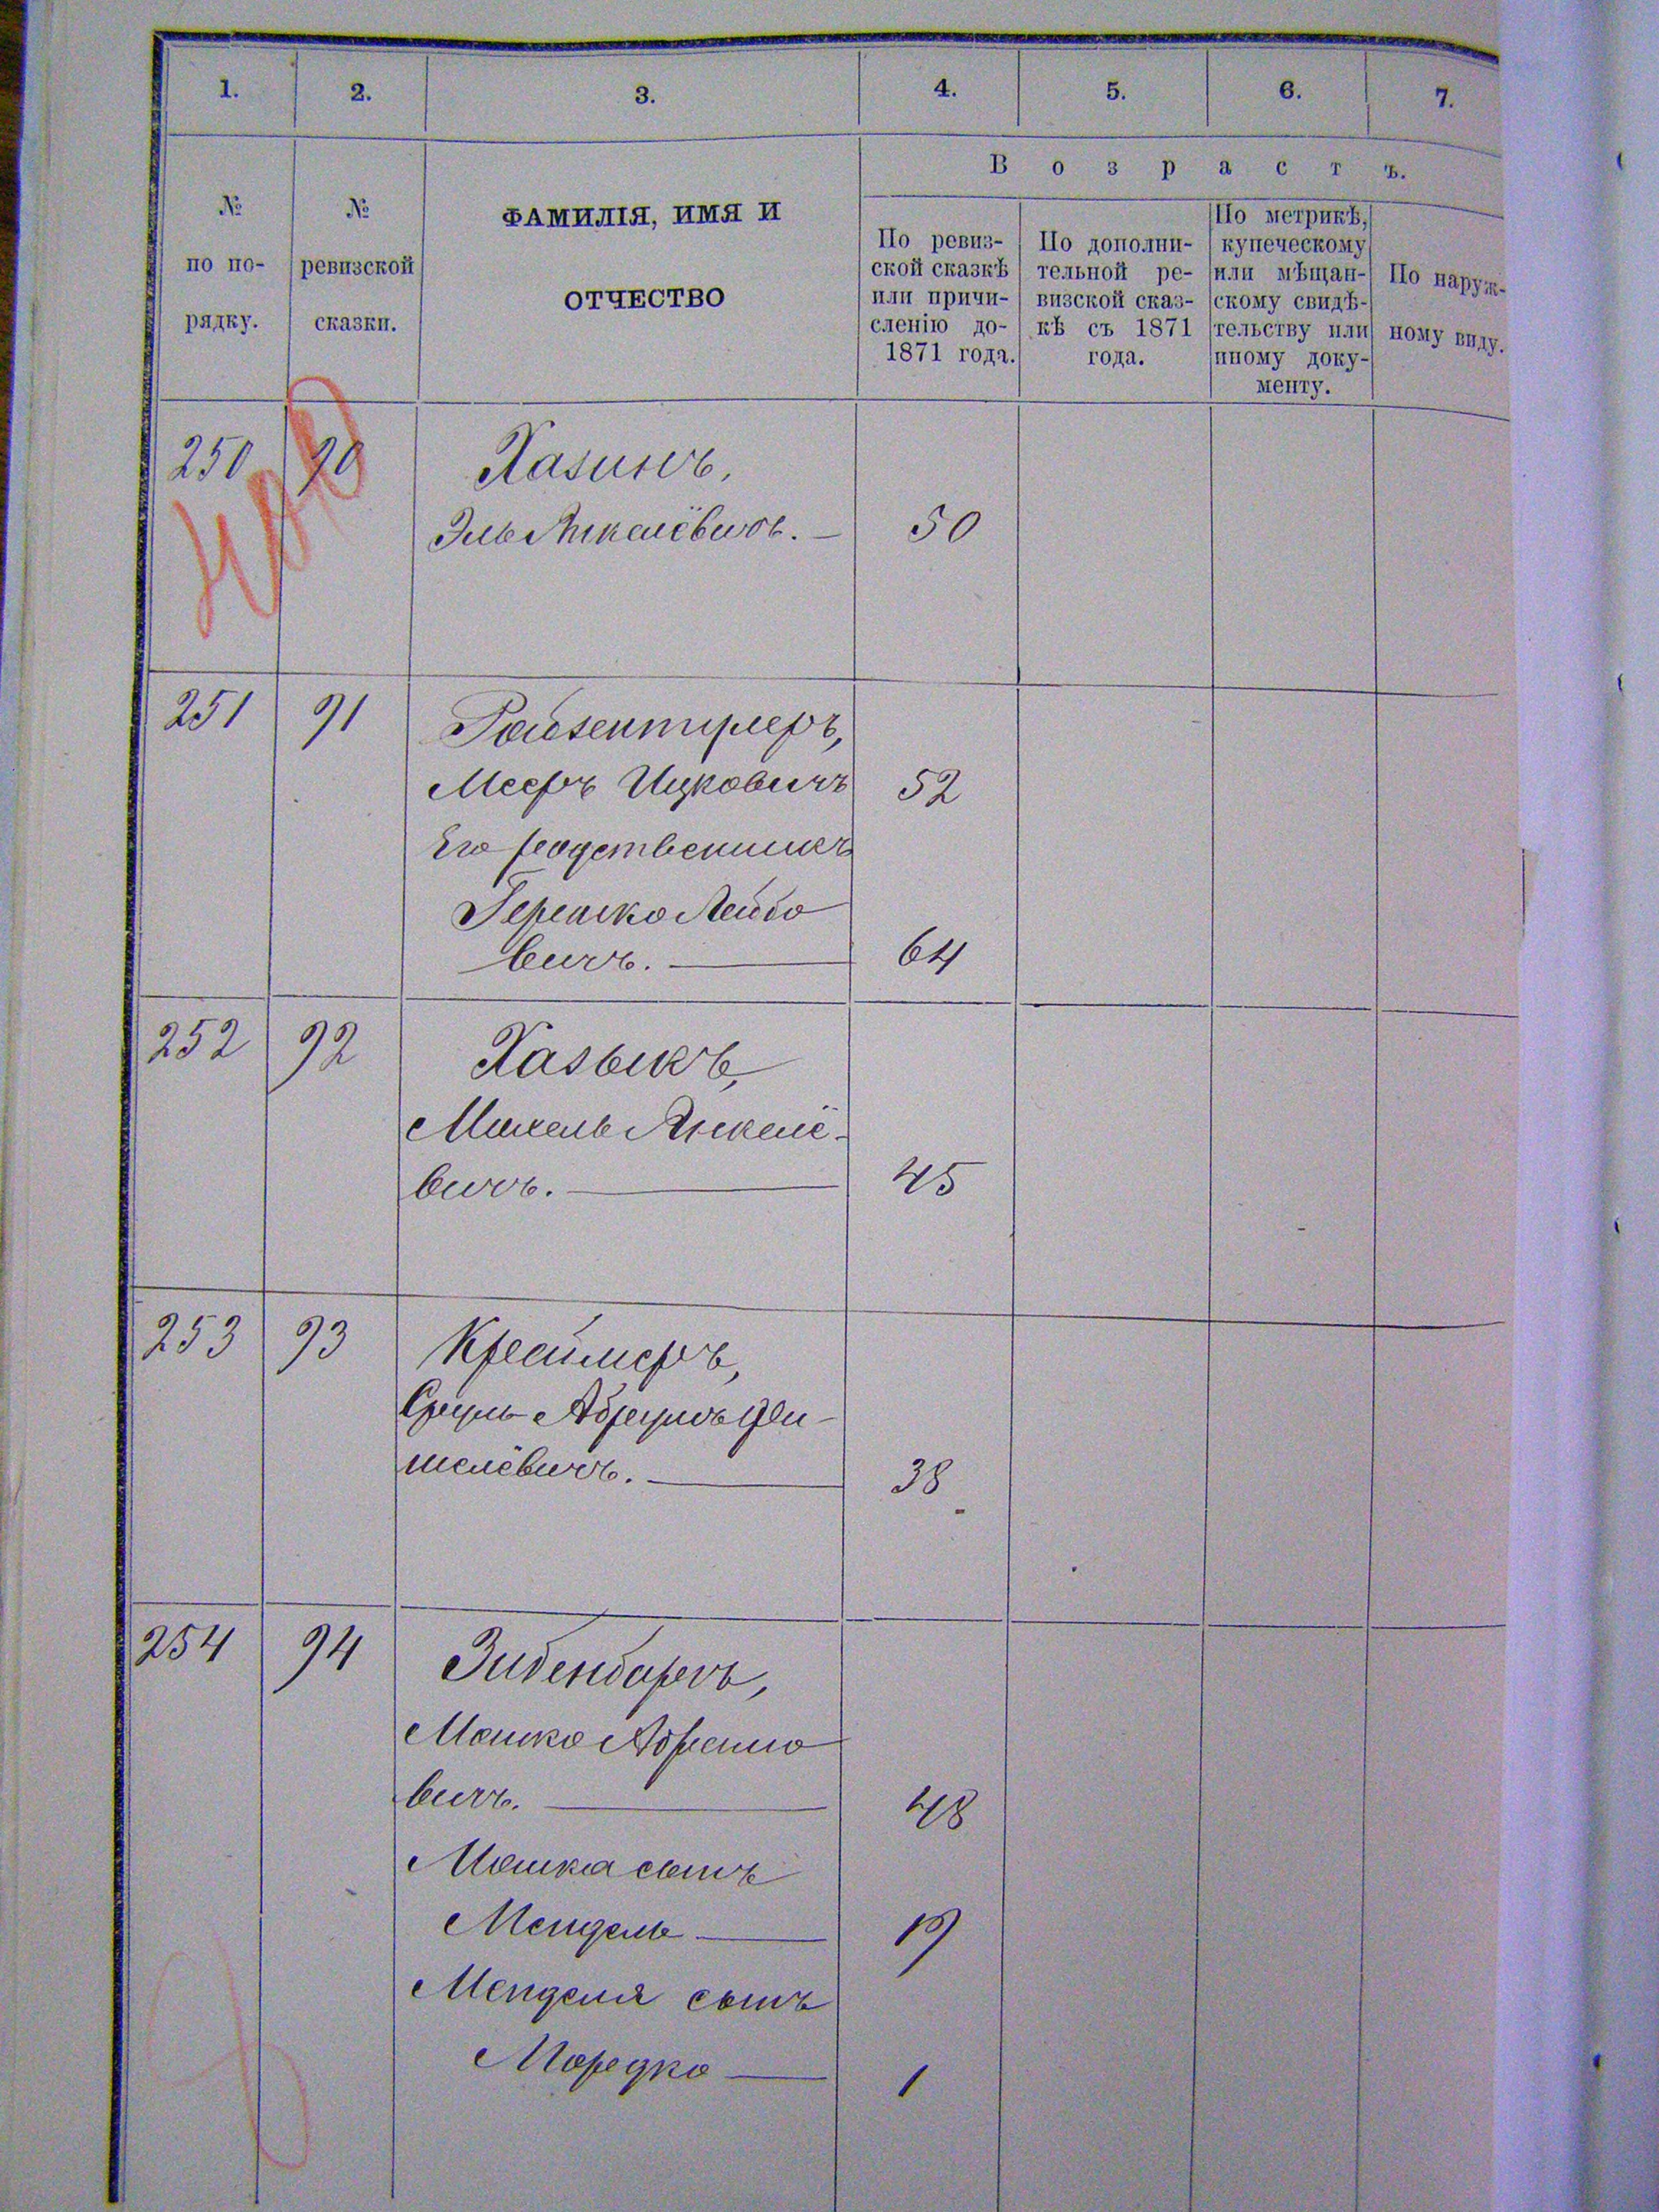 1. 2. 3. 4. 5. 6. 7.
№ по по- рядку.
№ ревизской сказки.
ФАМИЛІЯ, ИМЯ И
ОТЧЕСТВО
Возрастъ.
По ревиз-
ской сказкѣ
или причи-
сленію до-
1871 года.
По дополни-
тельной ре-
визской сказ-
кѣ съ 1871
года.
По метрикѣ,
купеческому
или мѣщан-
скому свидѣ-
тельству или
иному доку-
менту.
По наруж-
ному виду.
250 90 Хазинъ,
Эль Янкелёвичъ. — 50
251 91 Ройзентулеръ,
Мееръ Ицковичъ 52
Его родственникъ
Гершко Лейбо
вичъ. — 64
252 92 Хазыкъ,
Михель Янкелё-
вичъ. — 45
253 93 Креймеръ,
Сруль Абрумъ Фи-
шелёвичъ. — 38
254 94 Зибенбергъ,
Мошко Абрамо
вичъ. — 48
Мошка сынъ
Мендель — 19
Менделя сынъ
Мордко — 1